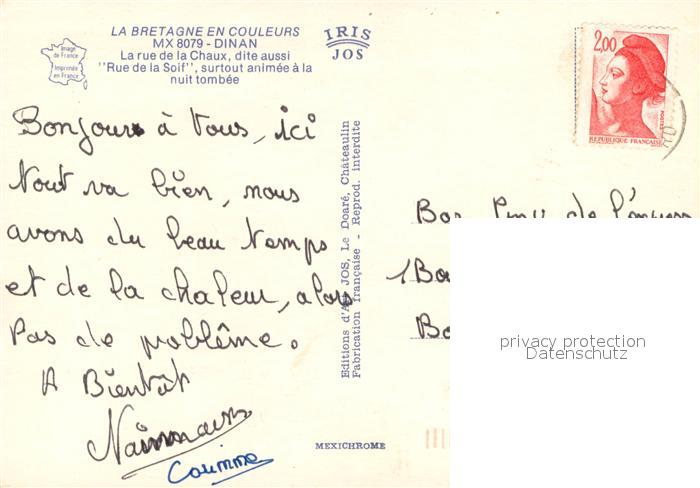 LA BRETAGNE EN COULEURS
MX 8079 - DINAN
La rue de la Chaux, dite aussi
"Rue de la Soif", surtout animée à la
nuit tombée
Image
de France
Imprimée
en France
IRIS
JOS
Bonjour à Vous, ici
tout va bien, nous
avons du beau temps
et de la chaleur, alors
pas de problème.
A Bientôt
Corinne
Editions d'Art JOS, Le Doaré, Châteaulin
Fabrication française - Reprod. interdite
MEXICHROME
2,00
POSTES
REPUBLIQUE FRANÇAISE
de
privacy protection
Datenschutz